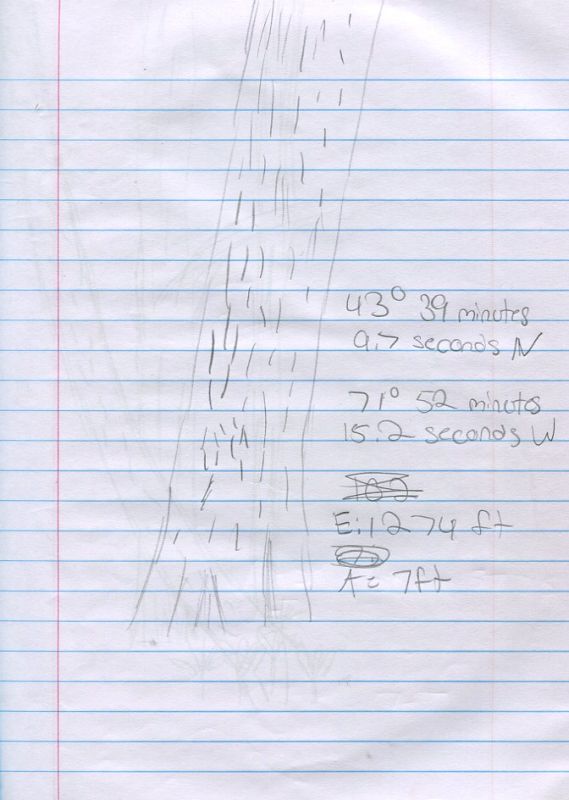 43° 39 minutes
9.7 seconds N
71° 52 minutes
15.2 seconds W
E: 1274 ft
A = 7ft